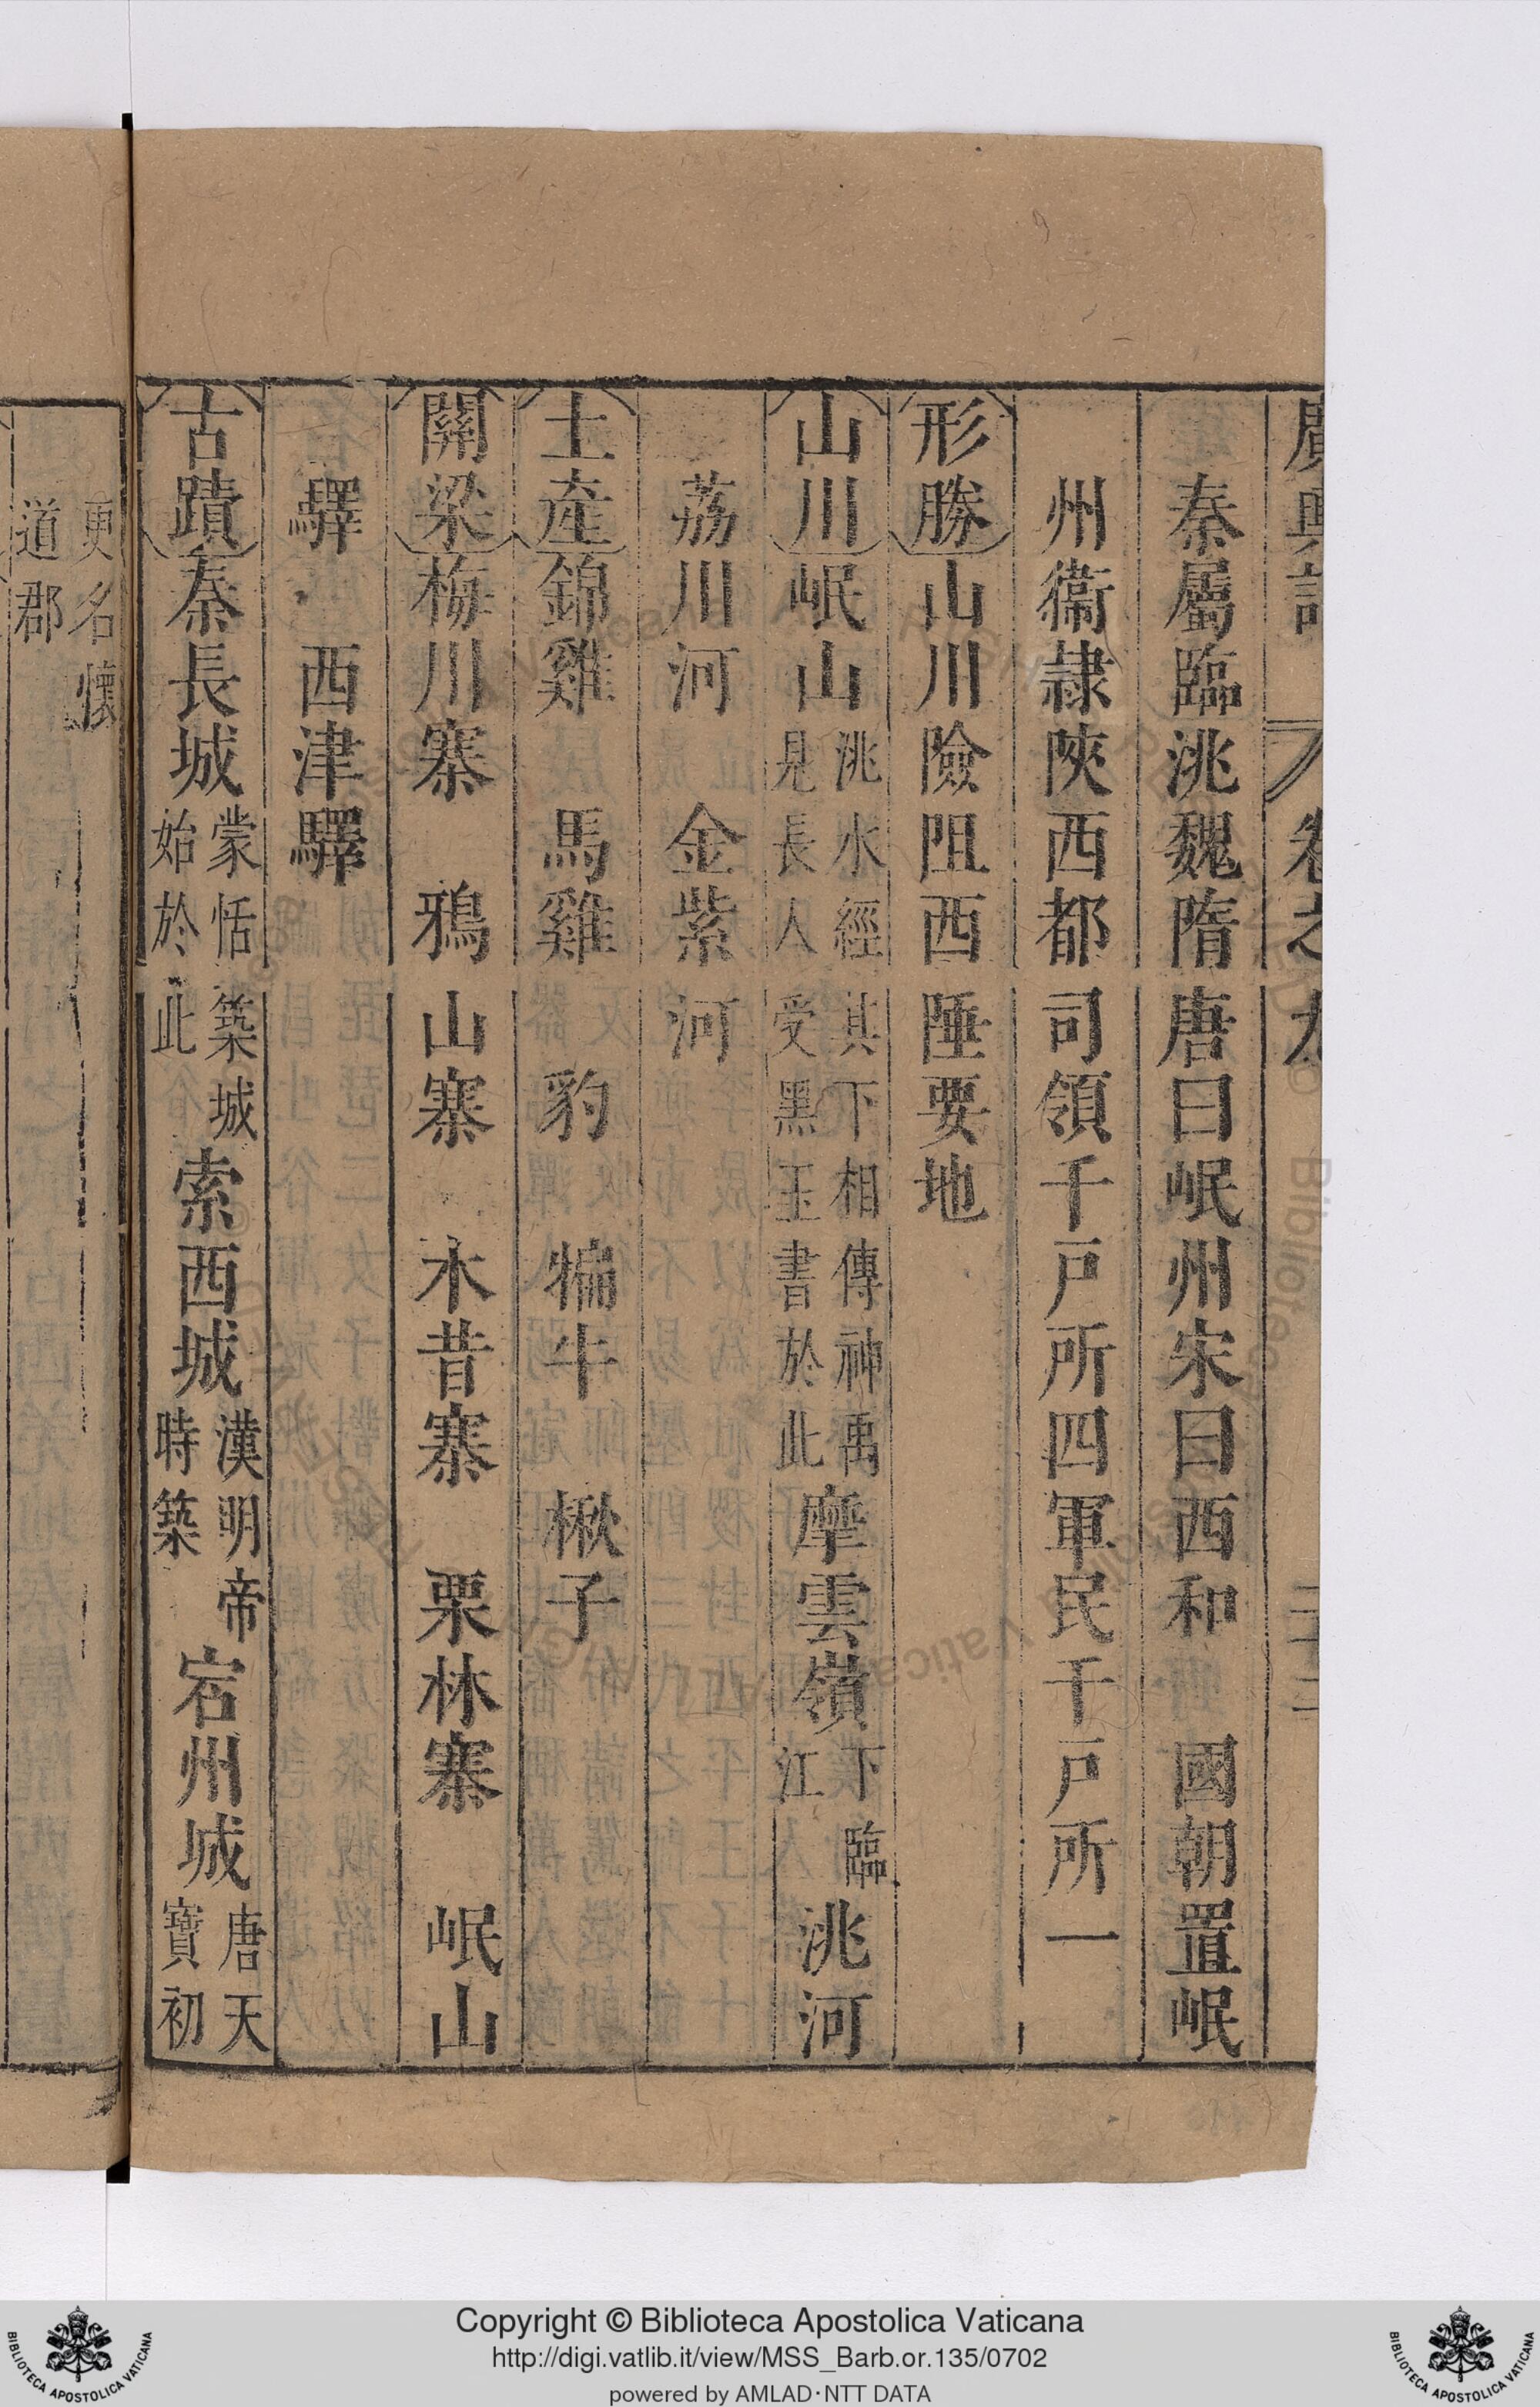 廣輿記 卷之九
秦屬臨洮魏隋唐曰岷州宋曰西和 國朝置岷
州衞隷陝西都司領千戸所四軍民千戸所一
形勝山川險阻西陲要地
山川岷山洮水經其下相傳神禹見長人受黑玉書於此摩雲嶺下臨江洮河
荔川河 金紫河
土產錦雞 馬雞 豹 犏牛 楸子
關梁梅川寨 鴉山寨 木昔寨 栗林寨 岷山
驛 西津驛
古蹟秦長城蒙恬築城始於此索西城漢明帝時築宕州城唐天寶初
更名懷道郡
Copyright © Biblioteca Apostolica Vaticana
http://digi.vatlib.it/view/MSS_Barb.or.135/0702
powered by AMLAD·NTT DATA
BIBLIOTECA APOSTOLICA VATICANA
BIBLIOTECA APOSTOLICA VATICANA